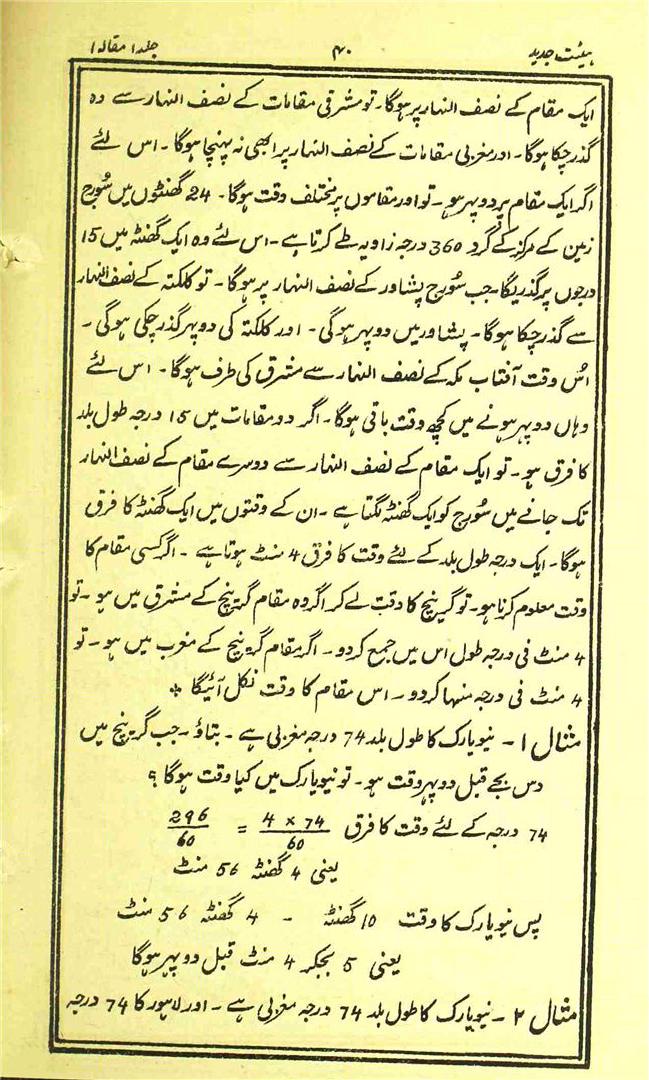 ہیئت جدید ۴۰ جلد ۱ مقالہ ۱
ایک مقام کے نصف النہار پر ہوگا۔ تو مشرقی مقامات کے نصف النہار سے وہ
گذر چکا ہوگا۔ اور مغربی مقامات کے نصف النہار پر ابھی نہ پہنچا ہوگا۔ اس لئے
اگر ایک مقام پر دوپہر ہو۔ تو اور مقاموں پر مختلف وقت ہوگا۔ 24 گھنٹوں میں سُورج
زمین کے مرکز کے گرد 360 درجہ زاویہ طے کرتا ہے۔ اس لئے وہ ایک گھنٹہ میں 15
درجوں پر گذریگا۔ جب سُورج پشاور کے نصف النہار پر ہوگا۔ تو کلکتہ کے نصف النہار
سے گذر چکا ہوگا۔ پشاور میں دوپہر ہوگی۔ اور کلکتہ کی دوپہر گذر چکی ہوگی۔
اُس وقت آفتاب مکہ کے نصف النہار سے مشرق کی طرف ہوگا۔ اس لئے
وہاں دوپہر ہونے میں کچھ وقت باقی ہوگا۔ اگر دو مقامات میں 15 درجہ طول بلد
کا فرق ہو۔ تو ایک مقام کے نصف النہار سے دوسرے مقام کے نصف النہار
تک جانے میں سُورج کو ایک گھنٹہ لگتا ہے۔ ان کے وقتوں میں ایک گھنٹہ کا فرق
ہوگا۔ ایک درجہ طول بلد کے لئے وقت کا فرق 4 منٹ ہوتا ہے۔ اگر کسی مقام کا
وقت معلوم کرنا ہو۔ تو گرینچ کا وقت لے کر اگر وہ مقام گرینچ کے مشرق میں ہو۔ تو
4 منٹ فی درجہ طول اس میں جمع کردو۔ اگر مقام گرینچ کے مغرب میں ہو۔ تو
4 منٹ فی درجہ منہا کردو۔ اس مقام کا وقت نکل آئیگا *
مثال ۱۔ نیویارک کا طول بلد 74 درجہ مغربی ہے۔ بتاؤ۔ جب گرینچ میں
دس بجے قبل دوپہر وقت ہو۔ تو نیویارک میں کیا وقت ہوگا؟
74 درجہ کے لئے وقت کا فرق 4 × 74 / 60 = 296 / 60
یعنی 4 گھنٹہ 56 منٹ
پس نیویارک کا وقت 10 گھنٹہ - 4 گھنٹہ 56 منٹ
یعنی 5 بجکر 4 منٹ قبل دوپہر ہوگا
مثال ۲۔ نیویارک کا طول بلد 74 درجہ مغربی ہے۔ اور لاہور کا 74 درجہ